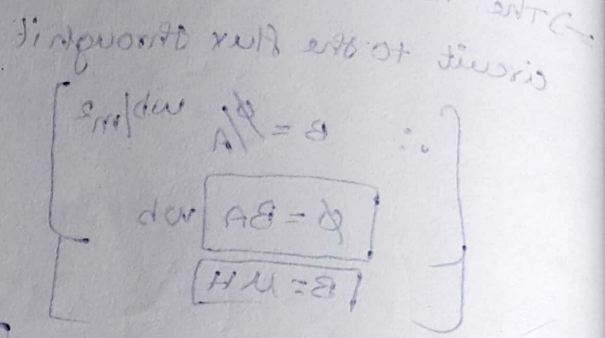 → The
circuit to the flux through it
∴ B = φ/A wb/m²
φ = BA wb
B = μH